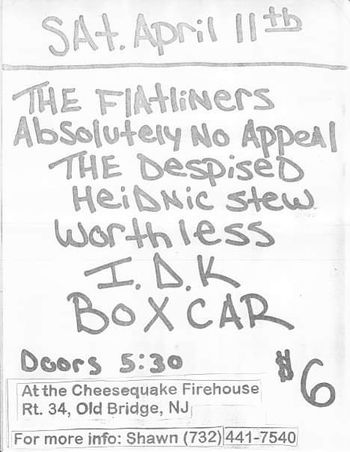 SAt. April 11th
THE FlAtliNers
AbSolutely No AppeAl
THE DespiseD
HeiDNic stew
worthless
I.D.K
BOXCAR
Doors 5:30
$6
At the Cheesequake Firehouse
Rt. 34, Old Bridge, NJ
For more info: Shawn (732) 441-7540